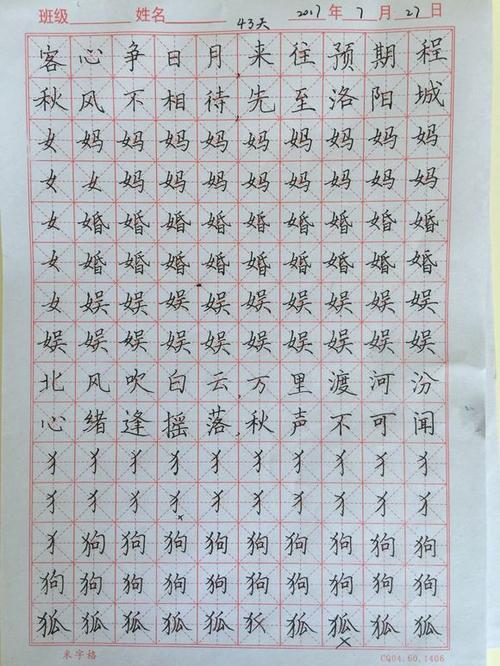 班级 姓名 43天 2017年7月27日
客心争日月,来往预期程
秋风不相待,先至洛阳城
女妈妈妈妈妈妈妈妈妈
女女妈妈妈妈妈妈妈妈
女婚婚婚婚婚婚婚婚婚
女婚婚婚婚婚婚婚婚婚
女娱娱娱娱娱娱娱娱娱
娱娱娱娱娱娱娱娱娱娱
北风吹白云,万里渡河汾
心绪逢摇落,秋声不可闻
犭犭犭犭犭犭犭犭犭犭
犭犭犭犭犭犭犭犭犭犭
犭狗狗狗狗狗狗狗狗狗
狗狗狗狗狗狗狗狗狗狗
狐狐狐狐狐狐狐狐狐
米字格 CQ04.60.1406